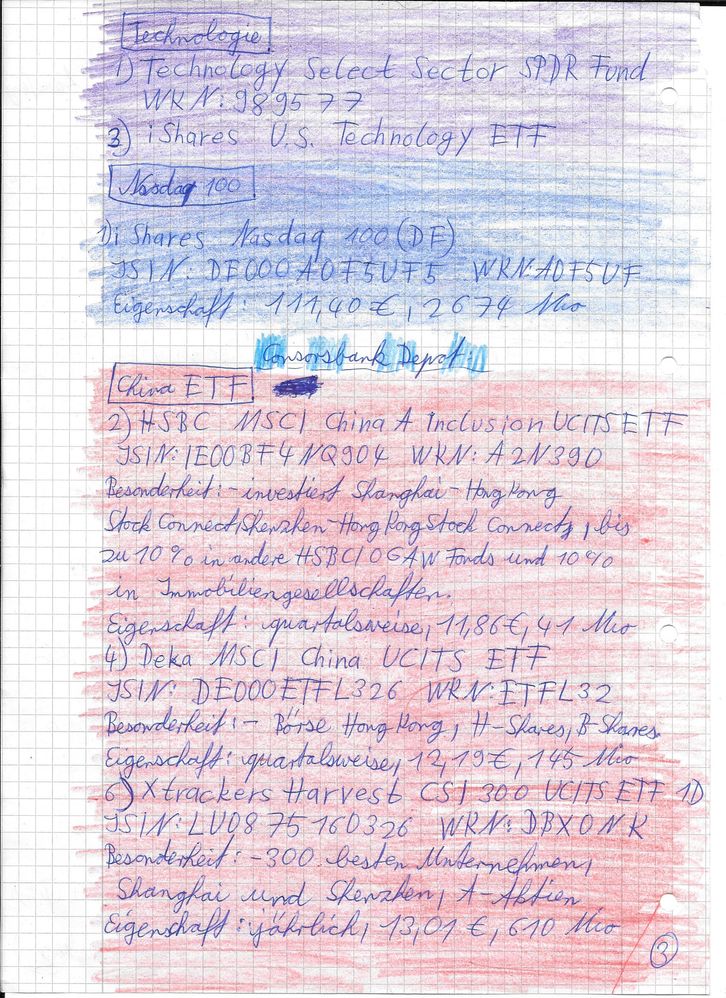 Technologie
1) Technology Select Sector SPDR Fund
WKN: 989577
3) iShares U.S. Technology ETF
Nasdaq 100
1) iShares Nasdaq 100 (DE)
ISIN: DE000A0F5UF5 WKN: A0F5UF
Eigenschaft: 111,40 €, 2674 Mio
Consorsbank Depot:
China ETF
2) HSBC MSCI China A Inclusion UCITS ETF
ISIN: IE00BF4NQ904 WKN: A2N390
Besonderheit: - investiert Shanghai-Hong Kong
Stock Connect, Shenzhen-Hong Kong Stock Connect, bis
zu 10% in andere HSBC/OGAW Fonds und 10%
in Immobiliengesellschaften.
Eigenschaft: quartalsweise, 11,86€, 41 Mio
4) Deka MSCI China UCITS ETF
ISIN: DE000ETFL326 WKN: ETFL32
Besonderheit: - Börse Hong Kong, H-Shares, B-Shares.
Eigenschaft: quartalsweise, 12,19€, 145 Mio
6) Xtrackers Harvest CSI 300 UCITS ETF 1D
ISIN: LU0875160326 WKN: DBX0NK
Besonderheit: -300 besten Unternehmen,
Shanghai und Shenzhen, A-Aktien
Eigenschaft: jährlich, 13,01 €, 610 Mio
3